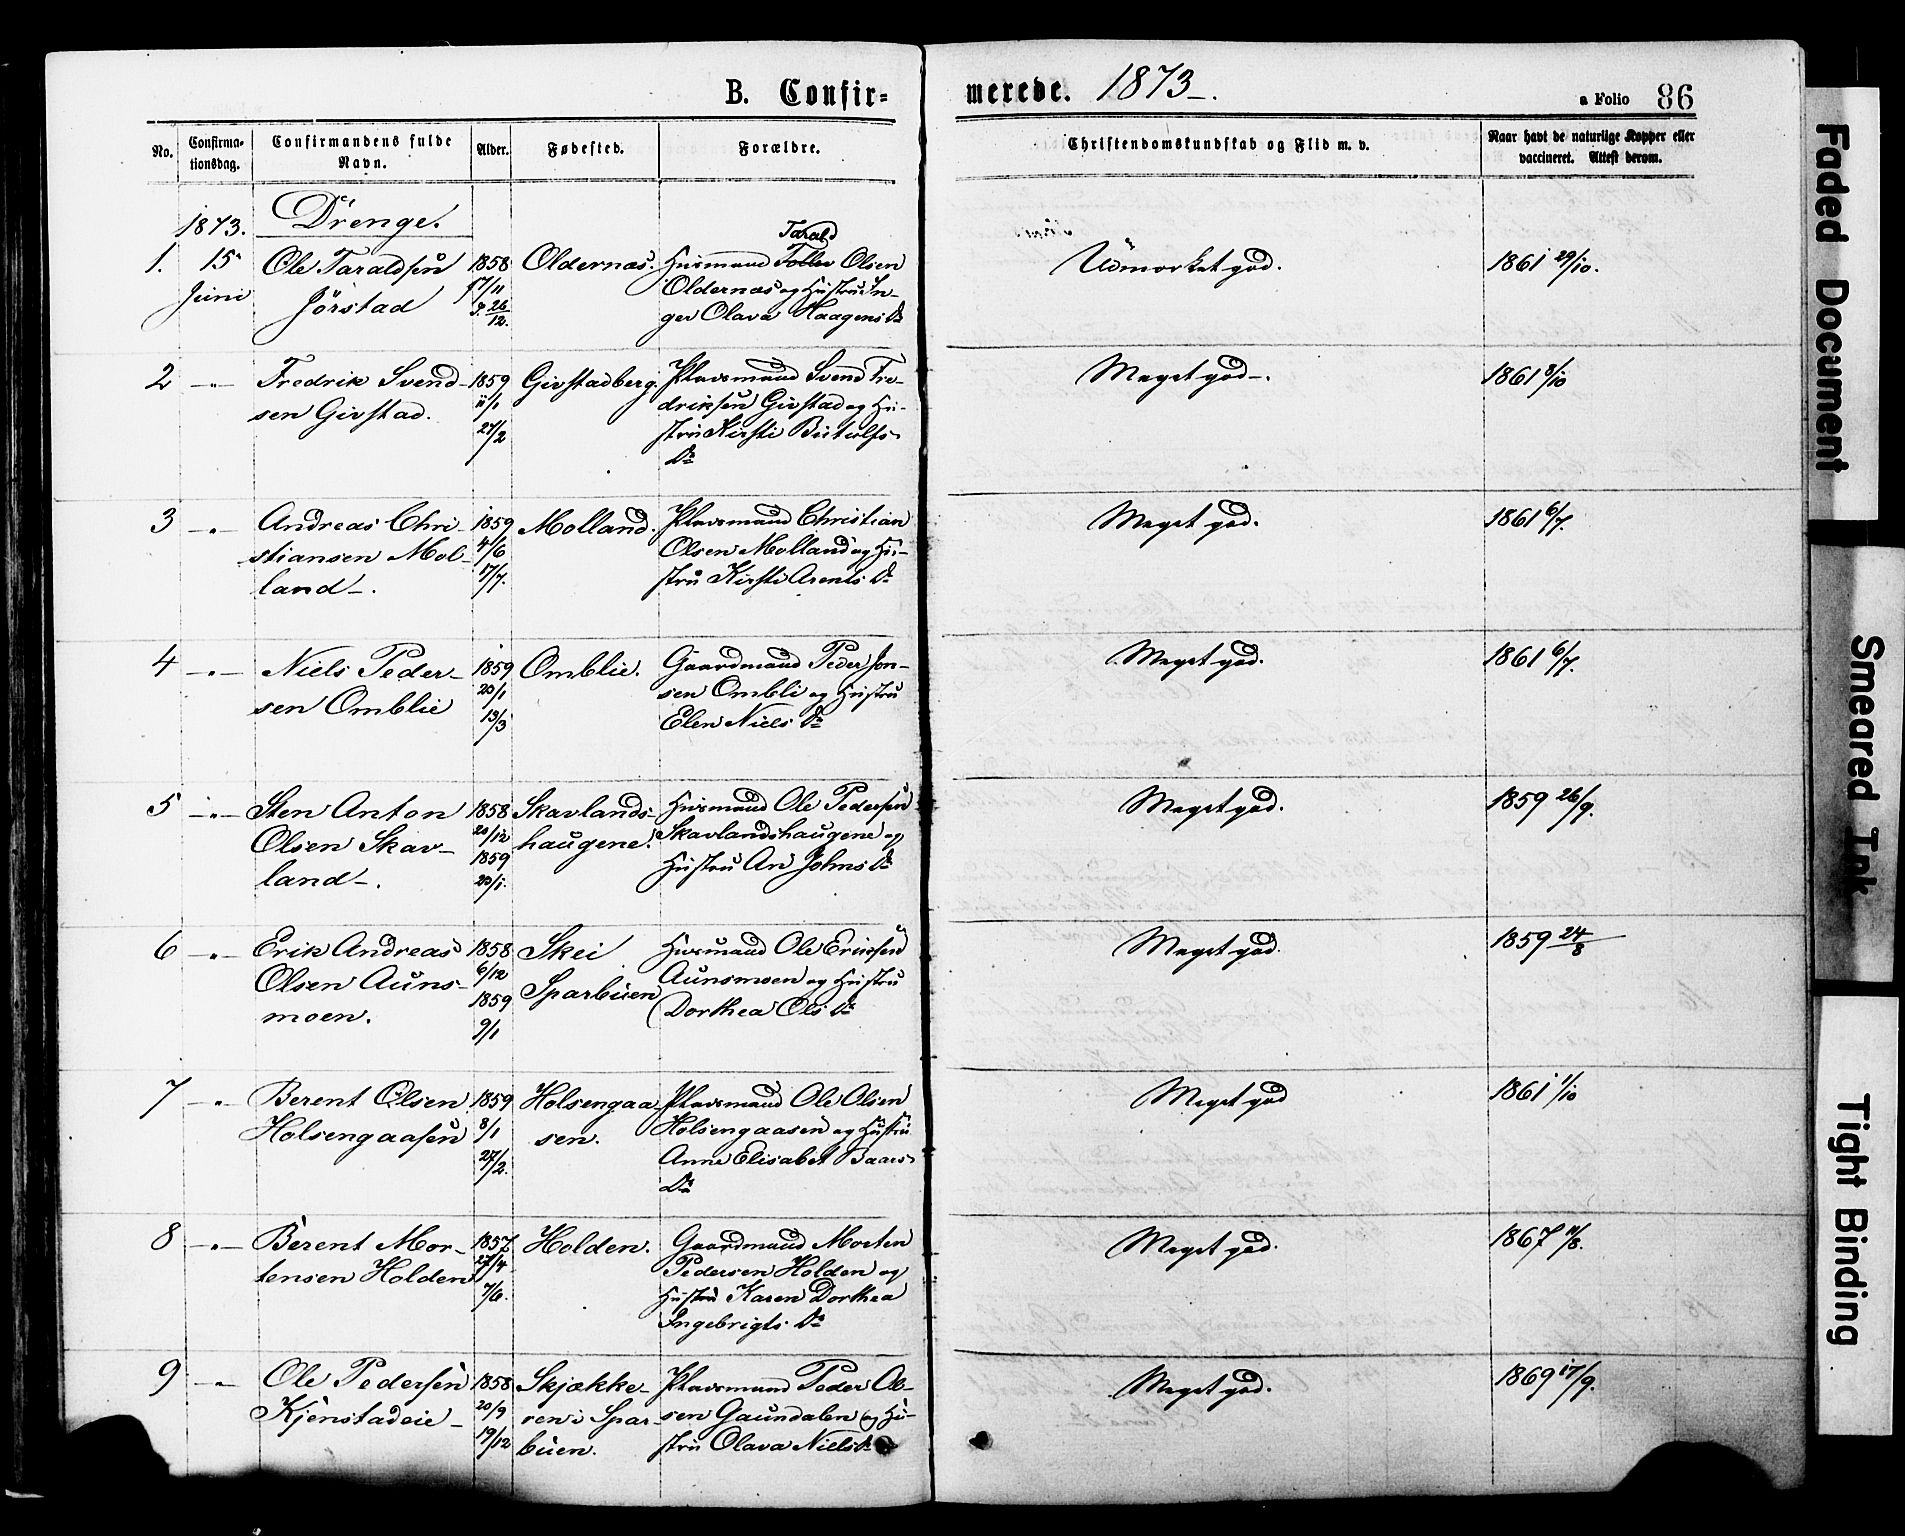 B. Confir=
merede. 1873.
a Folio 86
No.
Confirma-
tionsdag.
Confirmandens fulde
Navn.
Alder.
Fødested.
Forældre.
Christendomskundskab og Flid m. v.
Naar havt de naturlige Kopper eller
vaccineret. Attest derom.
1873.
Drenge.
1. 15
Juni
Ole Taraldsen
Jørstad
1858
17/11
26/12.
Oldernæs.
Tarald
Husmand Tolles Olsen
Oldernæs og Hustru In-
ger Olava Haagens Dr
Udmærket god.
1861 29/10.
2 -"-
Fredrik Svend-
sen Givstad.
1859
11/1
27/2
Givstadberg.
Pladsmand Svend Fre-
driksen Givstad og Hu-
stru Kirsti Butulfs
Dr
Meget god.
1861 8/10
3 -"-
Andreas Chri-
stiansen Mol-
land.
1859
4/6
17/7.
Molland.
Pladsmand Christian
Olsen Molland og Hu-
stru Kirsti Arents Dr
Meget god.
1861 6/7.
4 -"-
Niels Peder-
sen Omblie
1859
20/1
13/3
Omblie.
Gaardmand Peder Jon-
sen Ombli og Hustru
Elen Niels Dr
Meget god.
1861 6/7.
5 -"-
Sten Anton
Olsen Skav-
land.
1858
20/12
1859
20/1.
Skavlands-
haugene.
Husmand Ole Pedersen
Skavlandshaugene og
Hustru An Johns Dr
Meget god.
1859 26/9.
6 -"-
Erik Andreas
Olsen Auns-
moen.
1858
6/12
1859
9/1
Skei
Sparbuen
Husmand Ole Eriksen
Aunsmoen og Hustru
Dorthea Ols Dr
Meget god.
1859 24/8
7 -"-
Berent Olsen
Holsengaasen
1859
8/1
27/2.
Holsengaa-
sen.
Pladsmand Ole Olsen
Holsengaasen og Hustru
Anne Elisabet Baars
Dr
Meget god
1861 1/10
8 -"-
Berent Mor-
tensen Holden
1857
27/4
7/6.
Holden.
Gaardmand Morten
Pedersen Holden og
Hustru Karen Dorthea
Ingebrigts Dr
Meget god.
1867 11/8.
9 -"-
Ole Pedersen
Kjenstadeie
1858
20/9
19/12
Skjække-
ren i Spar-
buen.
Pladsmand Peder Ol-
sen Gaundalen og Hu-
stru Olava Niels Dr
Meget god.
1869 17/9.
Faded Document
Smeared Ink
Tight Binding